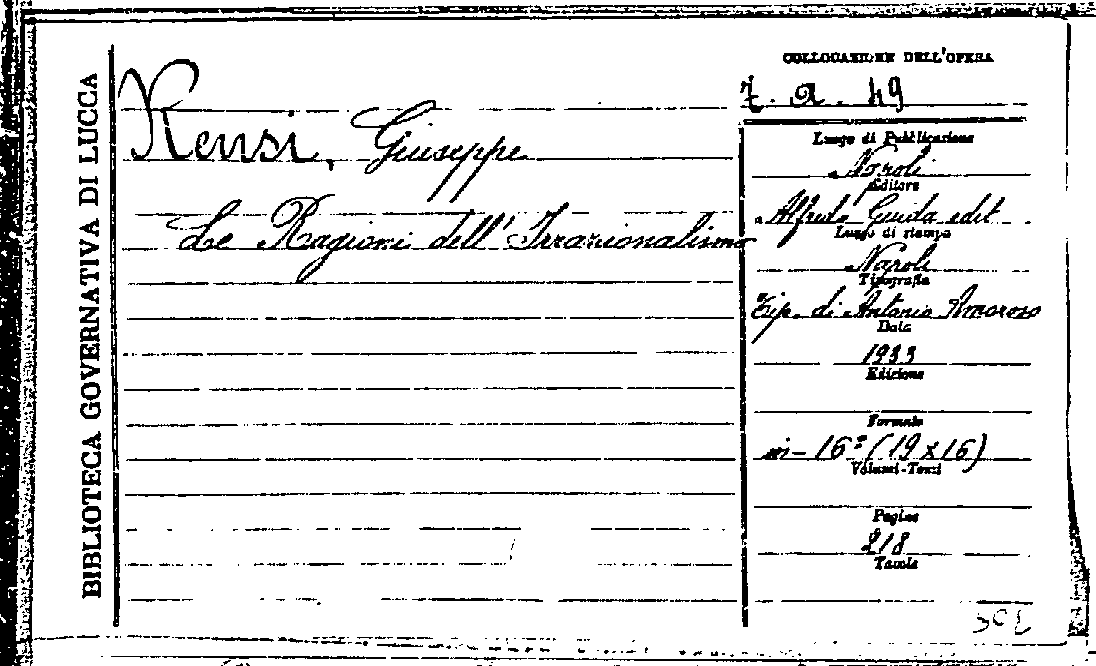 BIBLIOTECA GOVERNATIVA DI LUCCA
Rensi, Giuseppe
Le Ragioni dell'Irrazionalismo
COLLOCAZIONE DELL'OPERA
Z. a. 49
Luogo di Pubblicazione
Napoli
Editore
Alfredo Guida edit.
Luogo di stampa
Napoli
Tipografia
Tip. di Antonio Amoroso
Data
1933
Edizione
Formato
in-16º (19 x 16)
Volumi-Tomi
Pagine
218
Tavole